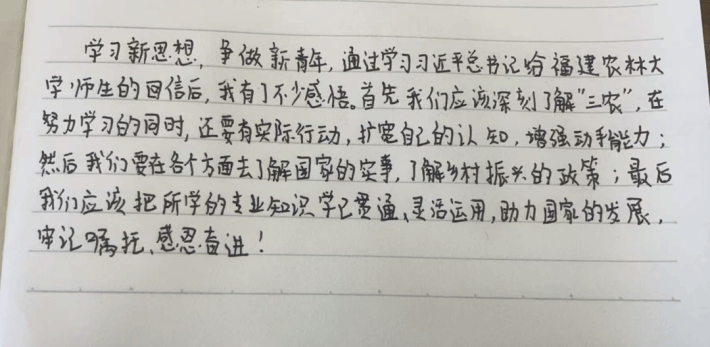 学习新思想，争做新青年，通过学习习近平总书记给福建农林大
学师生的回信后，我有了不少感悟。首先我们应该深刻了解“三农”，在
努力学习的同时，还要有实际行动，扩宽自己的认知，增强动手能力；
然后我们要在各个方面去了解国家的实事，了解乡村振兴的政策；最后
我们应该把所学的专业知识学已贯通、灵活运用，助力国家的发展，
牢记嘱托、感恩奋进！